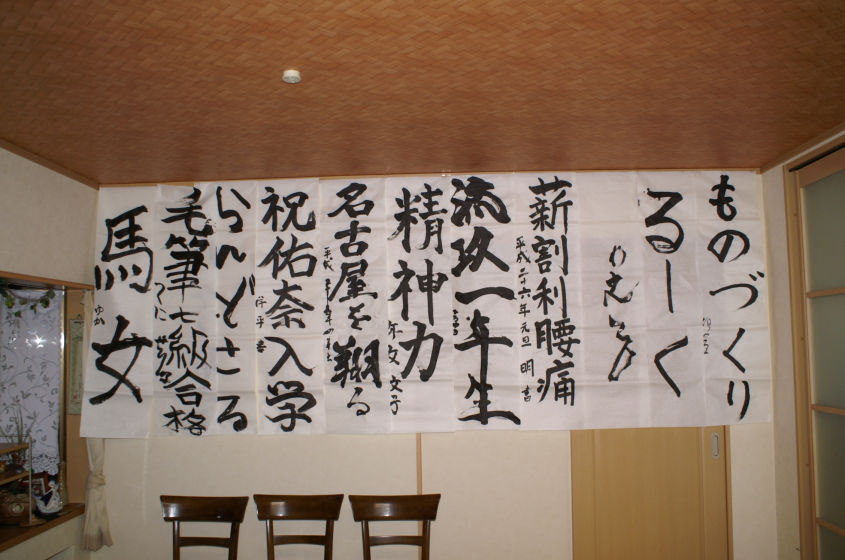 ものづくり
るーく
薪割利腰痛
平成二十六年元旦 明書
流玖一年生
精神力
名古屋を翔る
祝佑奈入学
洋平書
らんどさる
毛筆七級合格
馬女
ゆか